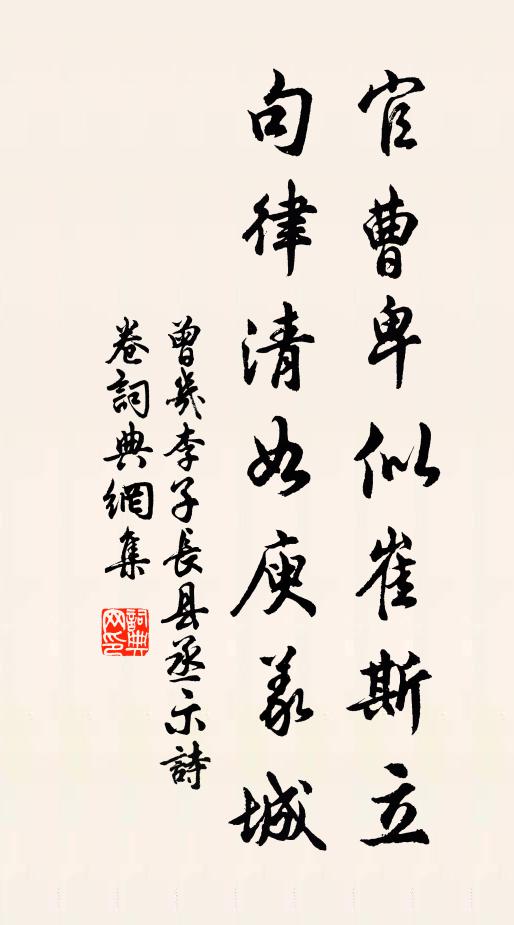 官曹卑似崔斯立
句律清如庾义城
曾幾李子長县丞示詩
卷詞典網集
詞典網印